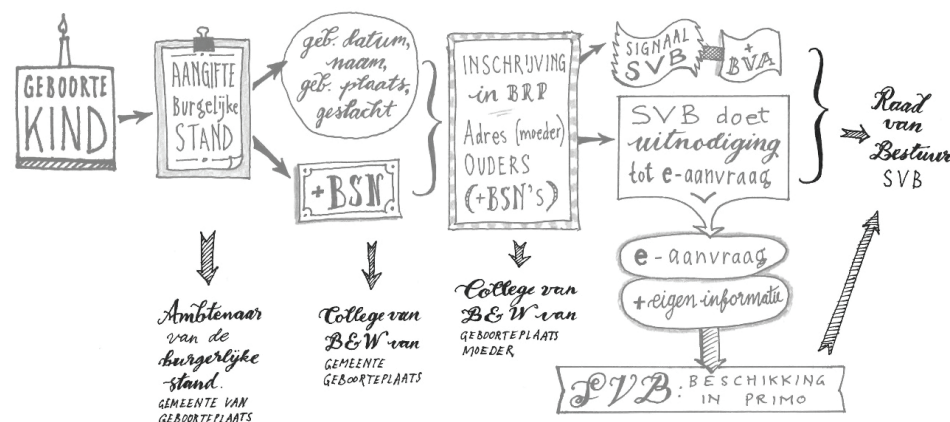 GEBOORTE
KIND
AANGIFTE
Burgelijke
STAND
geb. datum,
naam,
geb. plaats,
geslacht
+BSN
INSCHRIJVING
in BRP
Adres (moeder)
OUDERS
(+BSN'S)
SIGNAAL
SVB
+
BVA
SVB doet
uitnodiging
tot e-aanvraag
e-aanvraag
+eigen informatie
SVB: BESCHIKKING
IN PRIMO
Raad
van
Bestuur
SVB
Ambtenaar
van de
burgerlijke
stand.
GEMEENTE VAN
GEBOORTEPLAATS
College van
B&W van
GEMEENTE
GEBOORTEPLAATS
College van
B&W van
GEBOORTEPLAATS
MOEDER